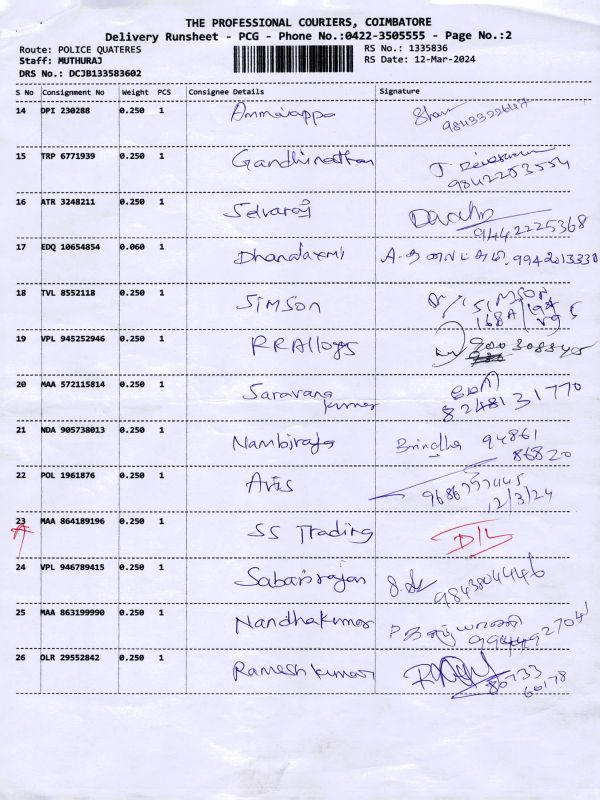 THE PROFESSIONAL COURIERS, COIMBATORE
Delivery Runsheet - PCG - Phone No.:0422-3505555 - Page No.:2
Route: POLICE QUATERES RS No.: 1335836
Staff: MUTHURAJ RS Date: 12-Mar-2024
DRS No.: DCJB133583602
S No Consignment No Weight PCS Consignee Details Signature
14 DPI 230288 0.250 1 Ammaiappa
15 TRP 6771939 0.250 1 Gandhinathan 9842253554
16 ATR 3248211 0.250 1 Selvaraj 9442225368
17 EDQ 10654854 0.060 1 Dhanalaxmi 9942013330
18 TVL 8552118 0.250 1 SIMSON SIMSON
168A
19 VPL 945252946 0.250 1 RRAlloys
20 MAA 572115814 0.250 1 Saravana
Kumar 8248131770
21 NDA 905738013 0.250 1 Nambiraja Brindha 94861
86820
22 POL 1961876 0.250 1 Avis
12/3/24
23 MAA 864189196 0.250 1 SS Trading D/L
24 VPL 946789415 0.250 1 Sabarirajan 9843804446
25 MAA 863199990 0.250 1 Nandhakumar
26 DLR 29552842 0.250 1 Rameshkumar 80733
60178